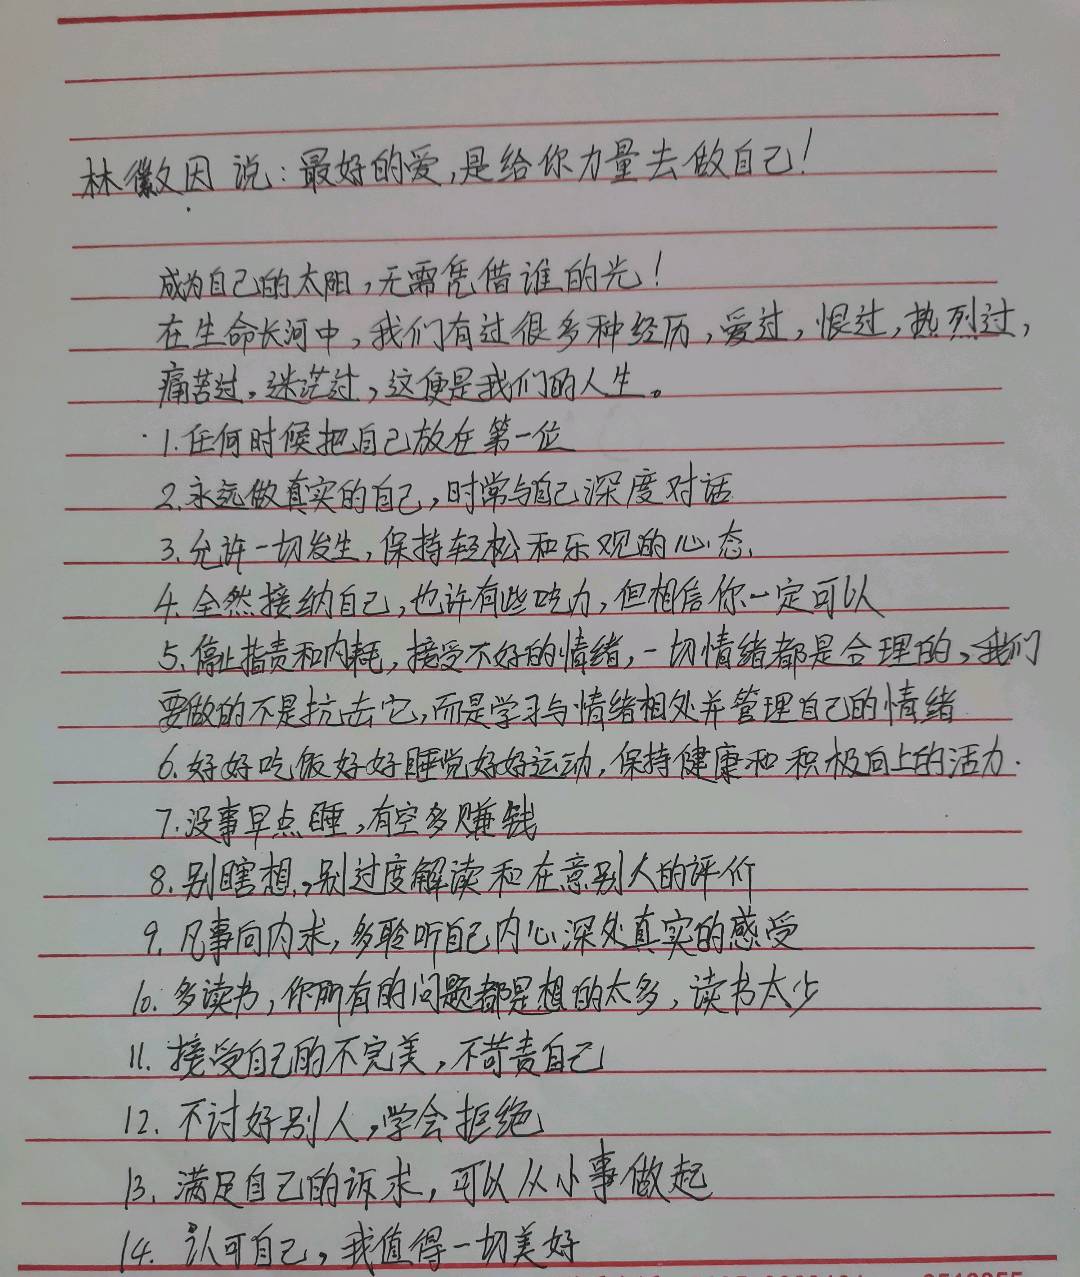 林徽因 说:最好的爱,是给你力量去做自己!
成为自己的太阳,无需凭借谁的光!
在生命长河中,我们有过很多种经历,爱过,恨过,热烈过,
痛苦过。迷茫过,这便是我们的人生。
1.任何时候把自己放在第一位
2.永远做真实的自己,时常与自己深度对话
3.允许一切发生,保持轻松和乐观的心态.
4.全然接纳自己,也许有些吃力,但相信你一定可以
5.停止指责和内耗,接受不好的情绪,一切情绪都是合理的,我们
要做的不是抗击它,而是学习与情绪相处并管理自己的情绪
6.好好吃饭好好睡觉好好运动,保持健康和积极向上的活力.
7.没事早点睡,有空多赚钱
8.别瞎想,别过度解读和在意别人的评价
9.凡事向内求,多聆听自己内心深处真实的感受
10.多读书,你所有的问题都是想的太多,读书太少
11.接受自己的不完美,不苛责自己
12.不讨好别人,学会拒绝
13.满足自己的诉求,可以从小事做起
14.认可自己,我值得一切美好